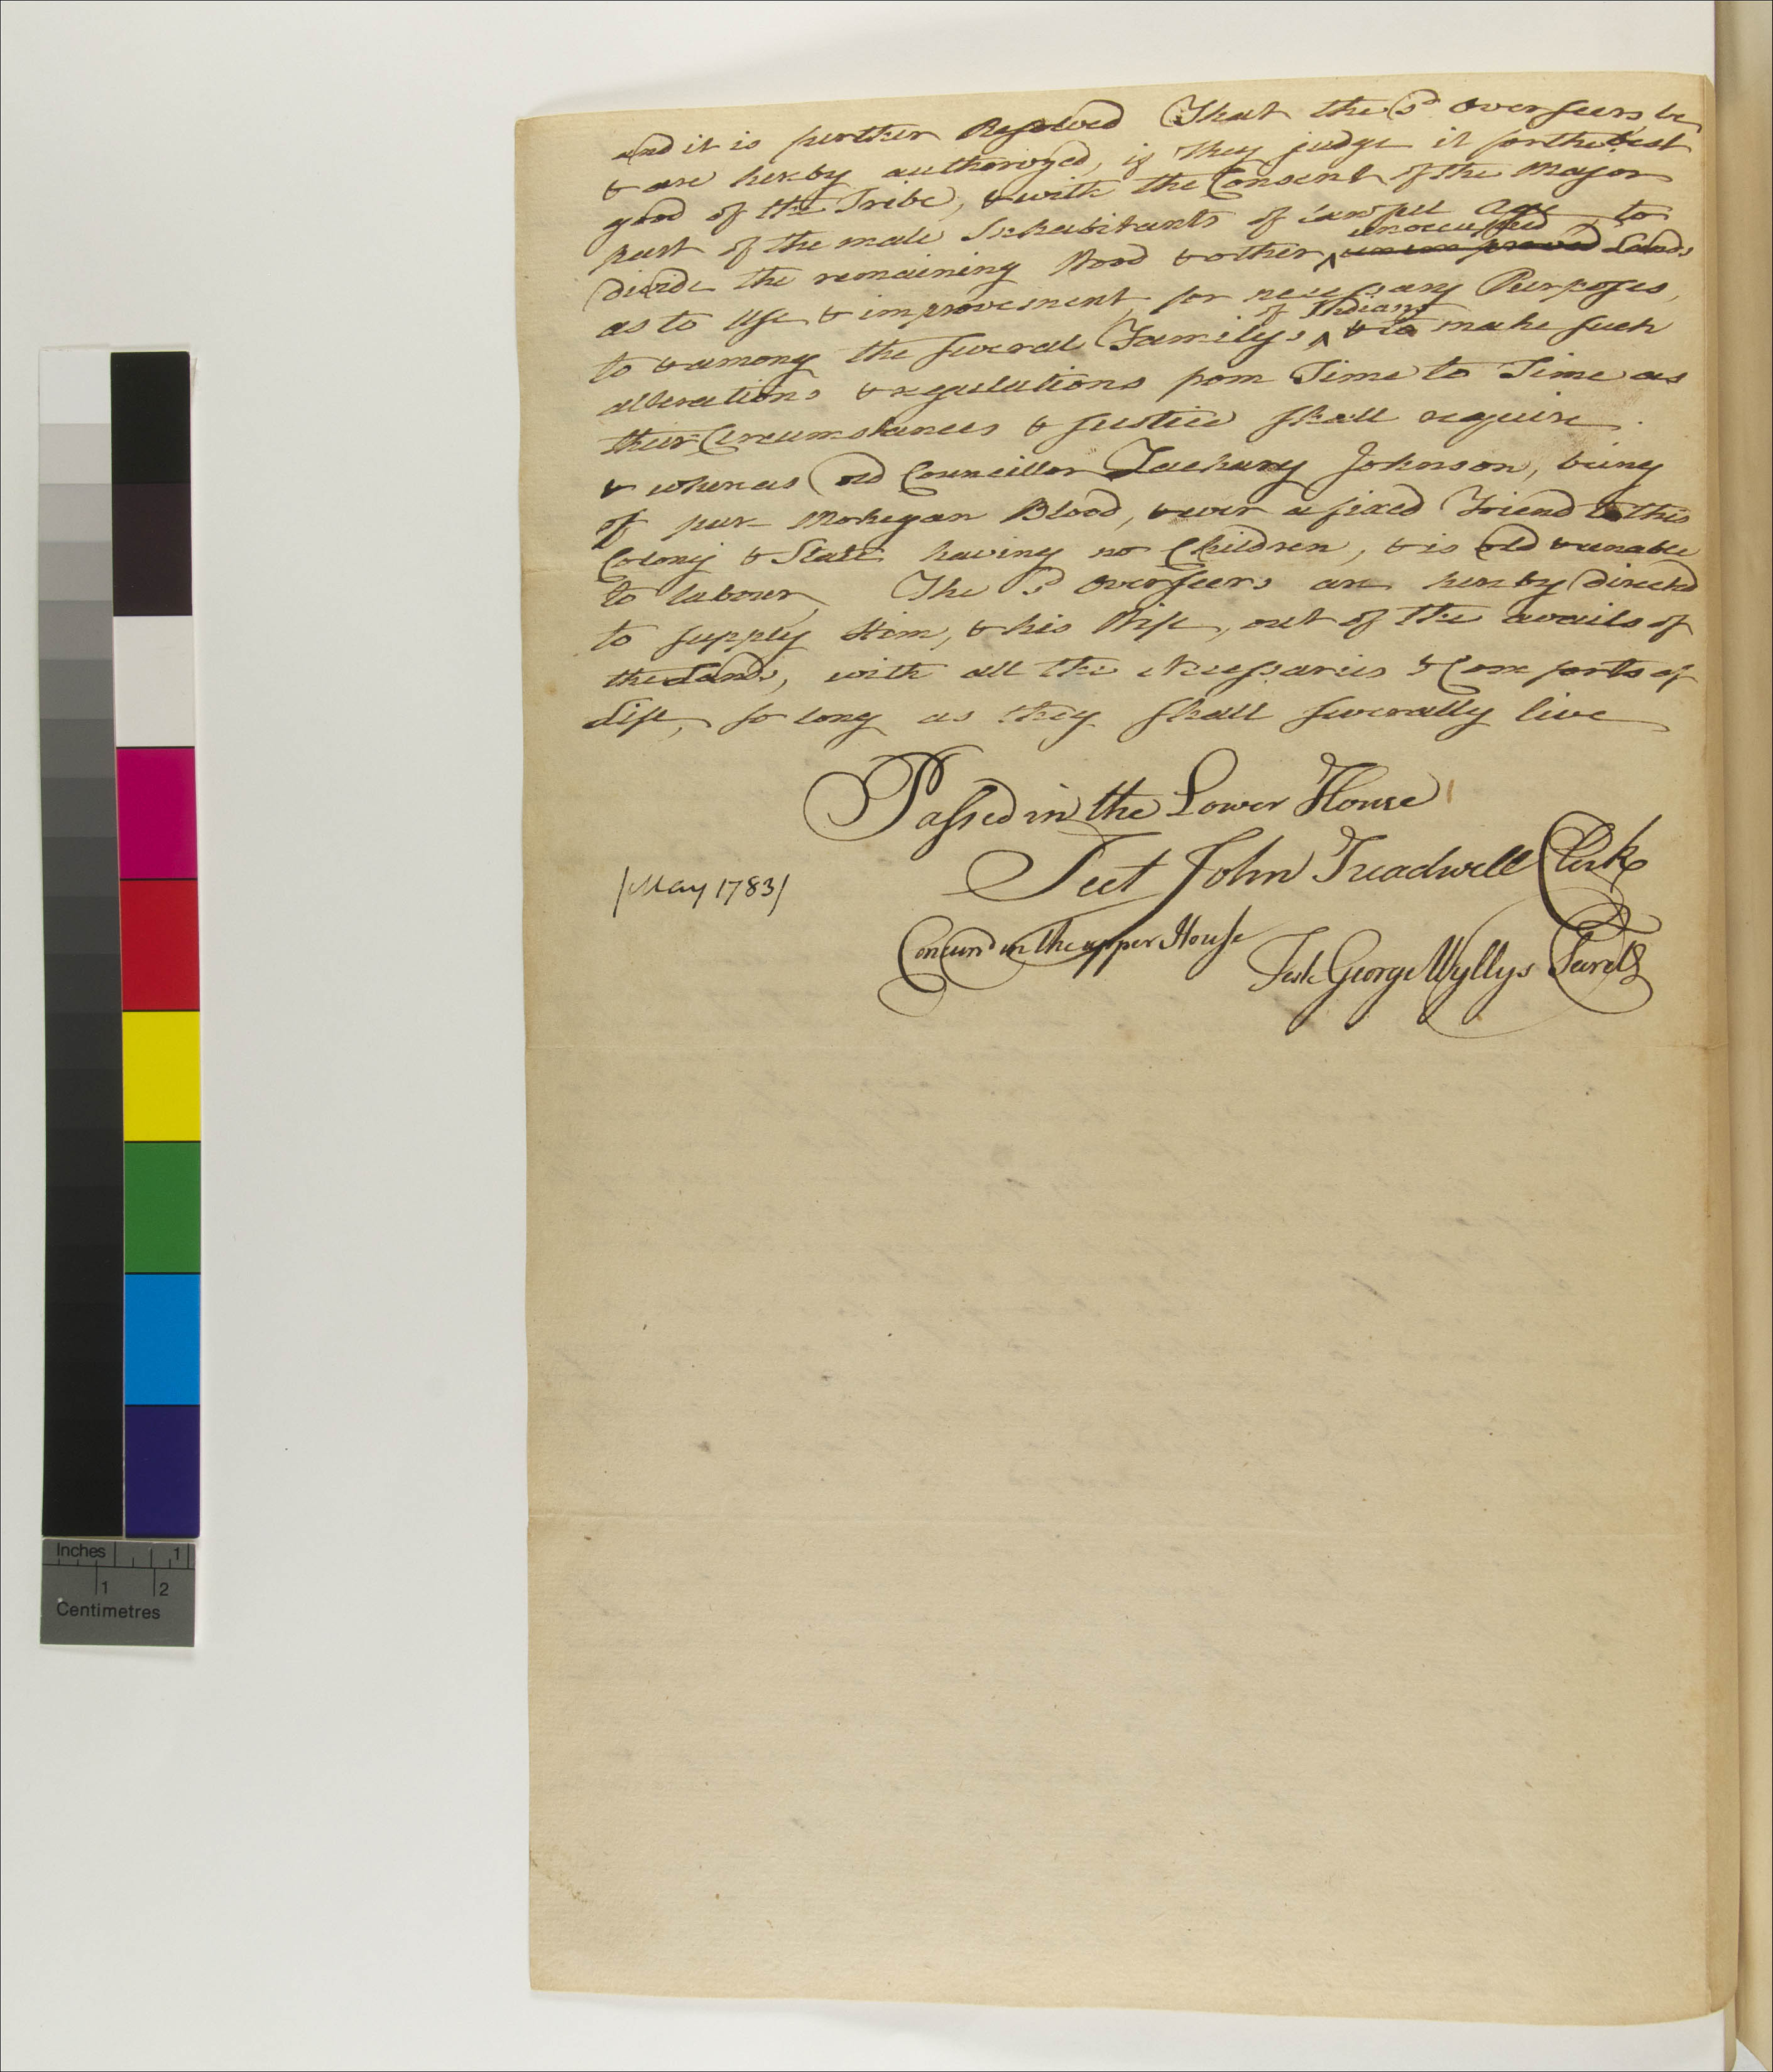 and it is further Resolved That the sd Overseers be
& are hereby authorized, if They judge it for the best
good of the Tribe, & with the Consent of the Major
part of the male Inhabitants of lawful Age, to
divide the remaining Wood & other unimproved Lands
unoccupied
as to Use & improvement, for necessary Purposes,
to & among the several Familys, & to make such
of Indians
alterations & regulations from Time to Time as
their Circumstances & Justice shall require.
& whereas Old Councillor Zachary Johnson, being
of pure Mohegan Blood, & ever a fixed Friend to this
Colony & State having no Children, & is old & unable
to labour, The sd Overseers are hereby directed
to supply Him, & his Wife, out of the avails of
the Lands, with all the Necessaries & Comforts of
Life, so long as they shall severally live
Passed in the Lower House
Test John Treadwell Clerk
[May 1783]
Concurrd in the upper House
Test George Wyllys Secrety
Inches 1
1 2
Centimetres